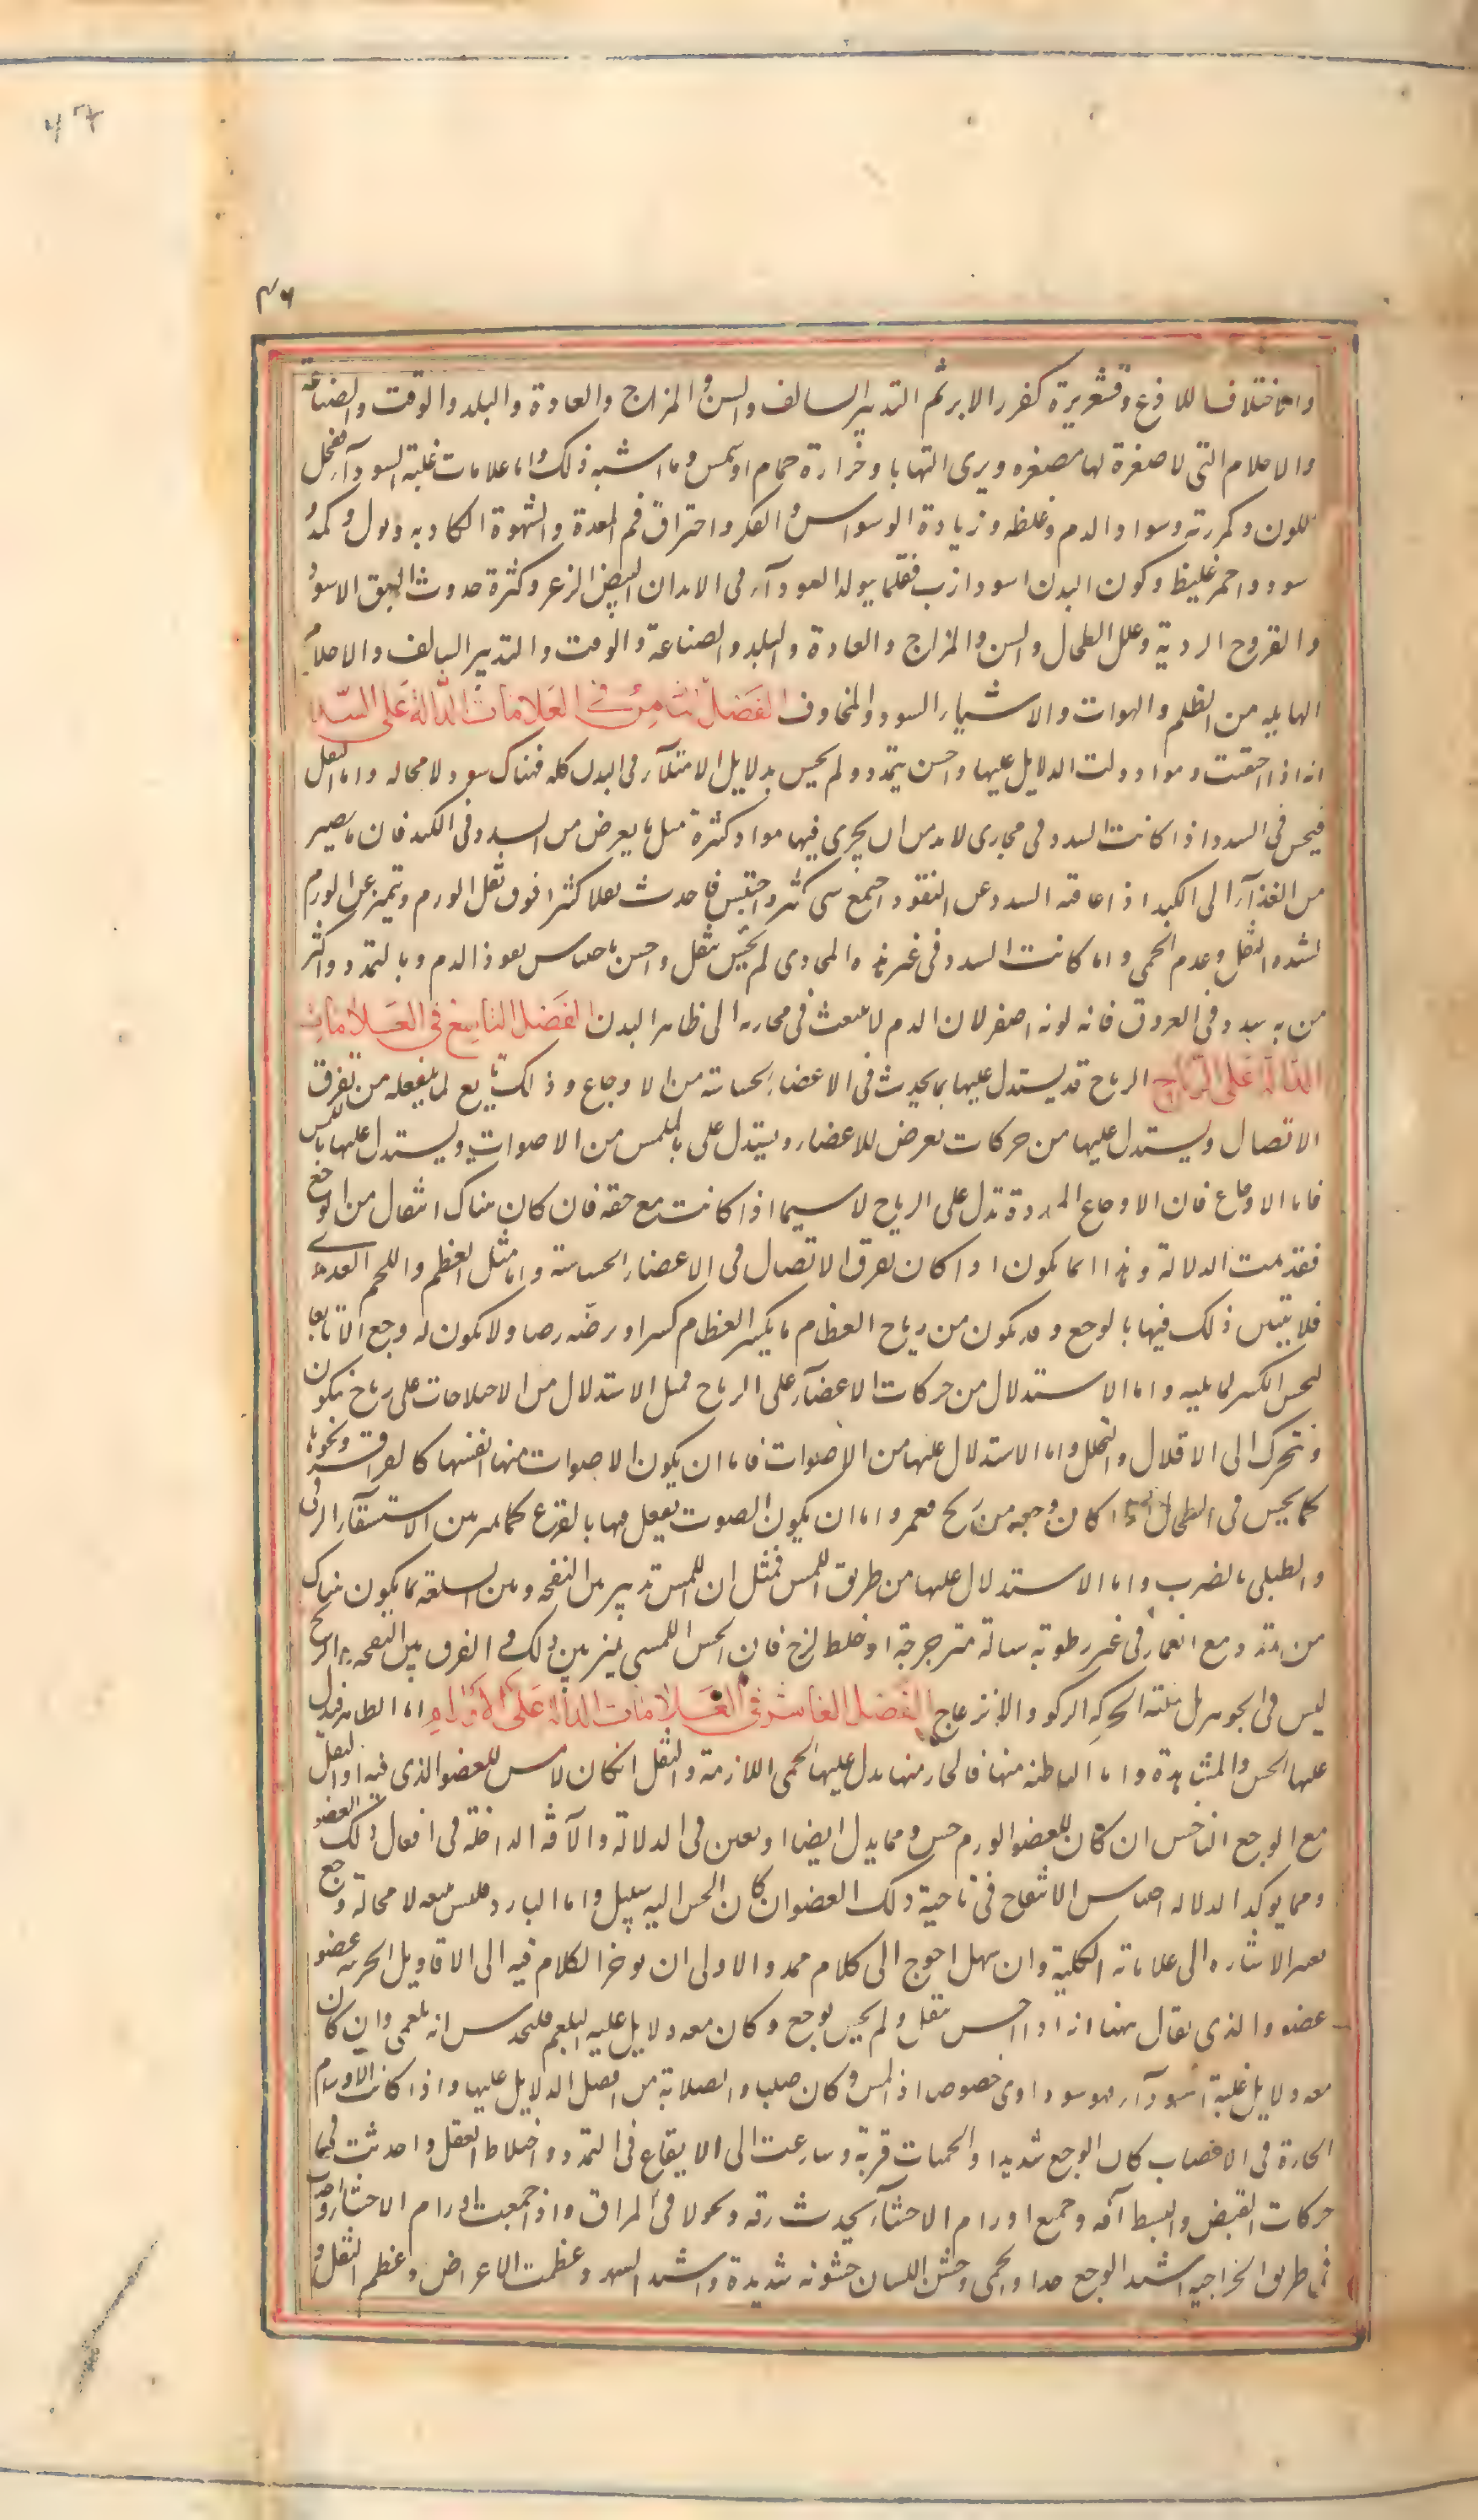 ۴۷
۴۶
واختلاف للاذع وقشعريرة كغرز الابر ثم التدبير السالف والسن والمزاج والعادة والبلد والوقت والصناعة
والاحلام التى لا صفرة لها مصفره ويرى التهابا وحرارة حمام او شمس وما اشبه ذلك واما علامات غلبة السودآء فقحل
اللون وكمودته وسواد الدم وغلظه وزيادة الوسواس والفكر واحتراق فم المعدة والشهوة الكاذبه وبول كمد و
سود واحمر غليظ وكون البدن اسود ازب فقلما يولد السودآء فى الابدان البيض الزعر وكثرة حدوث البهق الاسود
والقروح الردية وعلل الطحال والسن والمزاج والعادة والبلد والصناعة والوقت والتدبير السالف والاحلام
الهايله من الظلم والهوات والاشياء السود والمخاوف الفصل الثامن فى العلامات الدالة على السدد
انه اذا احتقنت مواد ودلت الدلايل عليها واحس بتمدد ولم يحس بدلايل الامتلآء فى البدن كله فهناك سدد لا محاله واما الثقل
فيحس فى السدد اذا كانت السدد فى مجارى لابد من ان يجرى فيها مواد كثيرة مثل ما يعرض من السدد فى الكبد فان ما يصير
من الغذآء الى الكبد اذا عاقته السدد عن النفوذ اجتمع شى كثير واحتبس فاحدث ثقلا كثيرا فوق ثقل الورم وتميز عن الورم
لشده الثقل وعدم الحمى واما اذا كانت السدد فى غير هذه المجارى لم يحس بثقل واحس باحتباس نفوذ الدم وبالتمدد واكثر
من به سدد فى العروق فانه لونه اصفر لان الدم لا ينبعث فى مجاريه الى ظاهر البدن الفصل التاسع فى العلامات
الدالة على الرياح الرياح قد يستدل عليها بما يحدث فى الاعضاء الحساسة من الاوجاع وذلك تابع لما يفعله من تفرق
الاتصال ويستدل عليها من حركات تعرض للاعضاء ويستدل على من الاصوات ويستدل عليها باللمس
فاما الاوجاع فان الاوجاع الممددة تدل على الرياح لا سيما اذا كانت مع خفه فان كان هناك انتقال من الوجع
فقد تمت الدلالة وهذا انما يكون اذا كان تفرق الاتصال فى الاعضاء الحساسة واما مثل العظم واللحم الغددى
فلا يتبين ذلك فيها بالوجع وقد يكون من رياح العظام ما يكسر العظام كسرا ويرضه رضا ولا يكون له وجع الا تابعا
لحس الكسر لما يليه واما الاستدلال من حركات الاعضآء على الرياح فمثل الاستدلال من الاختلاجات على رياح يتكون
وتتحرك الى الاقلال والتحلل واما الاستدلال عليها من الاصوات فاما ان يكون الاصوات منها انفسها كالقراقر ونحوها
كما يحس فى الطحال اذا كان وجعه من ريح واما ان يكون الصوت يفعل فيها بالقرع كما يميز بين الاستسقآء الزقى
والطبلى بالضرب واما الاستدلال عليها من طريق اللمس فمثل ان اللمس يميز بين النفخه وبين السلعه بما يكون هناك
من تمدد مع انغماز فى غير رطوبة سيالة مترجرجة او خلط لزج فان الحس اللمسى يميز بين ذلك والفرق بين النفخه والريح
ليس فى الجوهر بل فى هيئة الحركه والركود والانزعاج الفصل العاشر فى العلامات الدالة على الاورام اما الظاهرة فيدل
عليها الحس والمشاهدة واما الباطنه منها فالحار منها يدل عليها الحمى اللازمة والثقل ان كان لا حس للعضو الذى فيه او الثقل
مع الوجع الناخس ان كان للعضو الورم حس ومما يدل ايضا او يعين فى الدلالة والآفة الداخلة فى افعال ذلك العضو
ومما يوكد الدلالة احساس الانتفاخ فى ناحية ذلك العضو ان كان للحس اليه سبيل واما البارد فليس معه لا محالة وجع
تعسر الاشارة الى علاماته الكلية وان سهل احوج الى كلام ممل والاولى ان نوخر الكلام فيه الى الاقاويل الجزئيه عضو
عضو والذى يقال ههنا انه اذا احس بثقل ولم يحس بوجع وكان معه دلايل غلبة البلغم فليحدس انه بلغمى وان كان
معه دلايل غلبة السودآء فهو سوداوى خصوصا اذا لمس وكان صلبا والصلابة من افضل الدلايل عليها واذا كانت الاورام
الحارة فى الاعصاب كان الوجع شديدا والحميات قوية وسارعت الى الايقاع فى التمدد واختلاط العقل واحدثت فى
حركات القبض والبسط آفه وجميع اورام الاحشآء يحدث رقه ونحولا فى المراق واذا جمعت اورام الاحشاء
فى طريق الخراجيه اشتد الوجع جدا والحمى وخشن اللسان خشونه شديدة واشتد السهر وعظمت الاعراض وعظم الثقل و